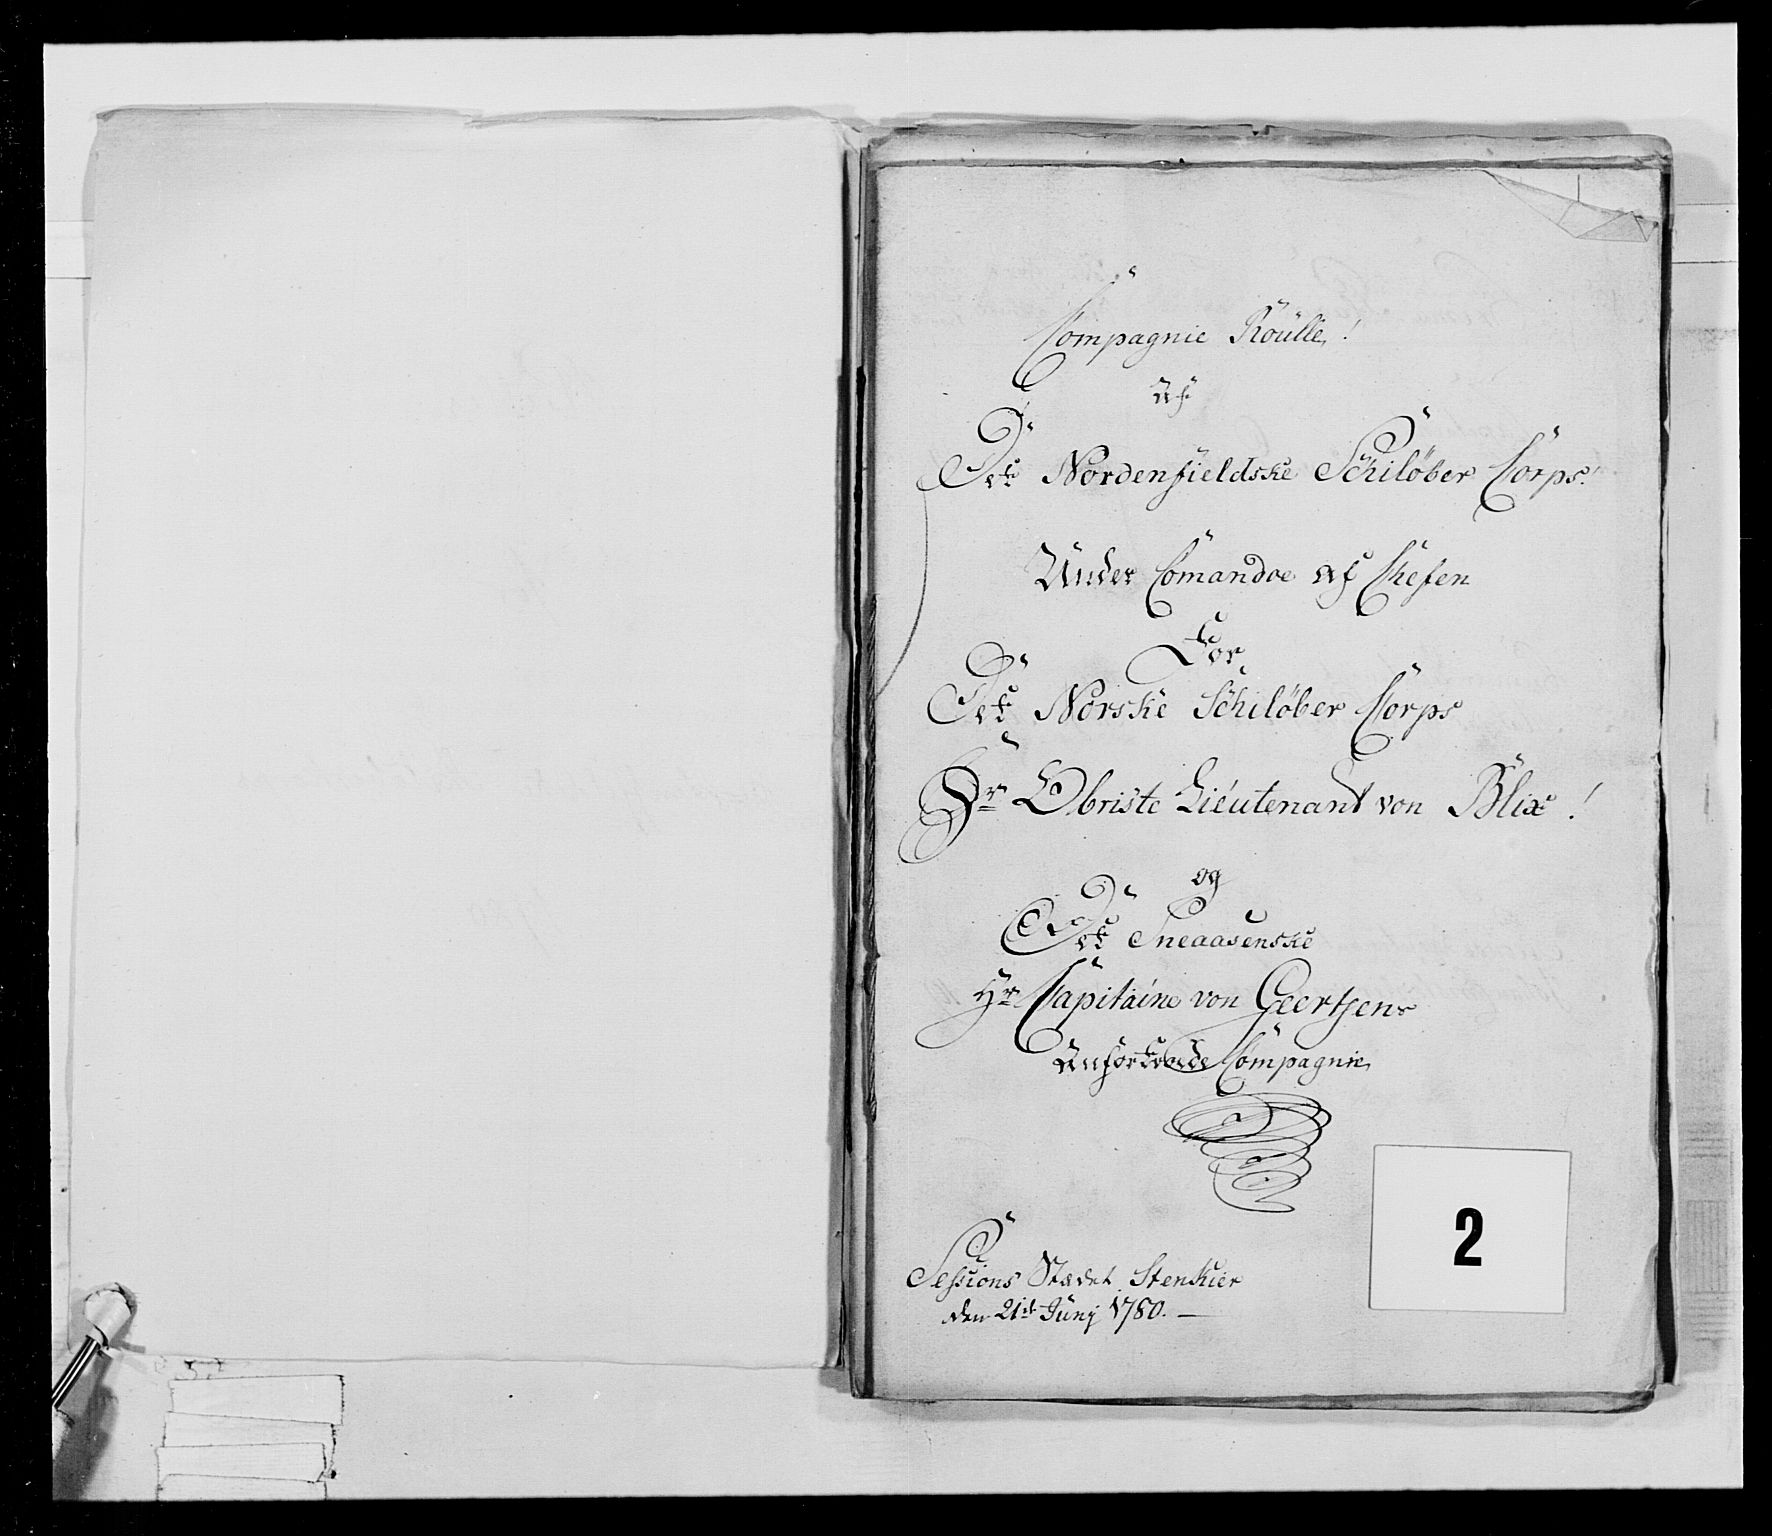 Compagnie Roülle!
Af
Det Nordenfieldske Schilöber Corps!
Under Comandoe af Chefen
For
Det Norske Schilöber Corps
Hr Obriste Lieutenant von Blix!
og
Det Sneaasenske
Hr Capitaine von Geertsens
Anfortroede Compagnie
2
Sessions Stædet Stenkier
den 21de Junj 1780. —